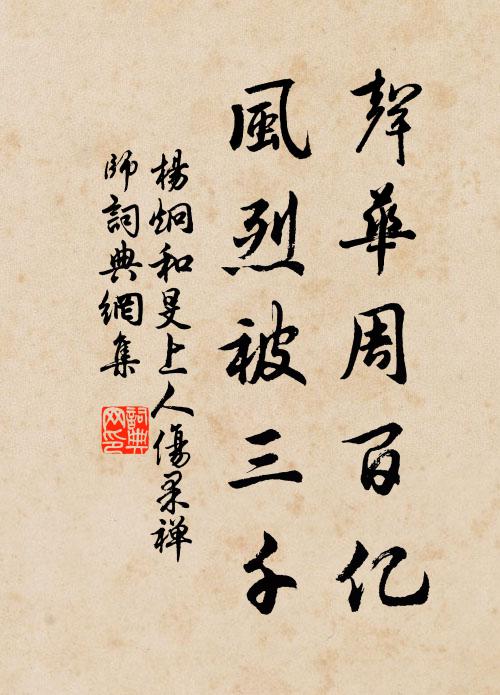 聲華周百亿
風烈被三千
楊炯和旻上人傷果禅
師詞典網集
詞典
网印